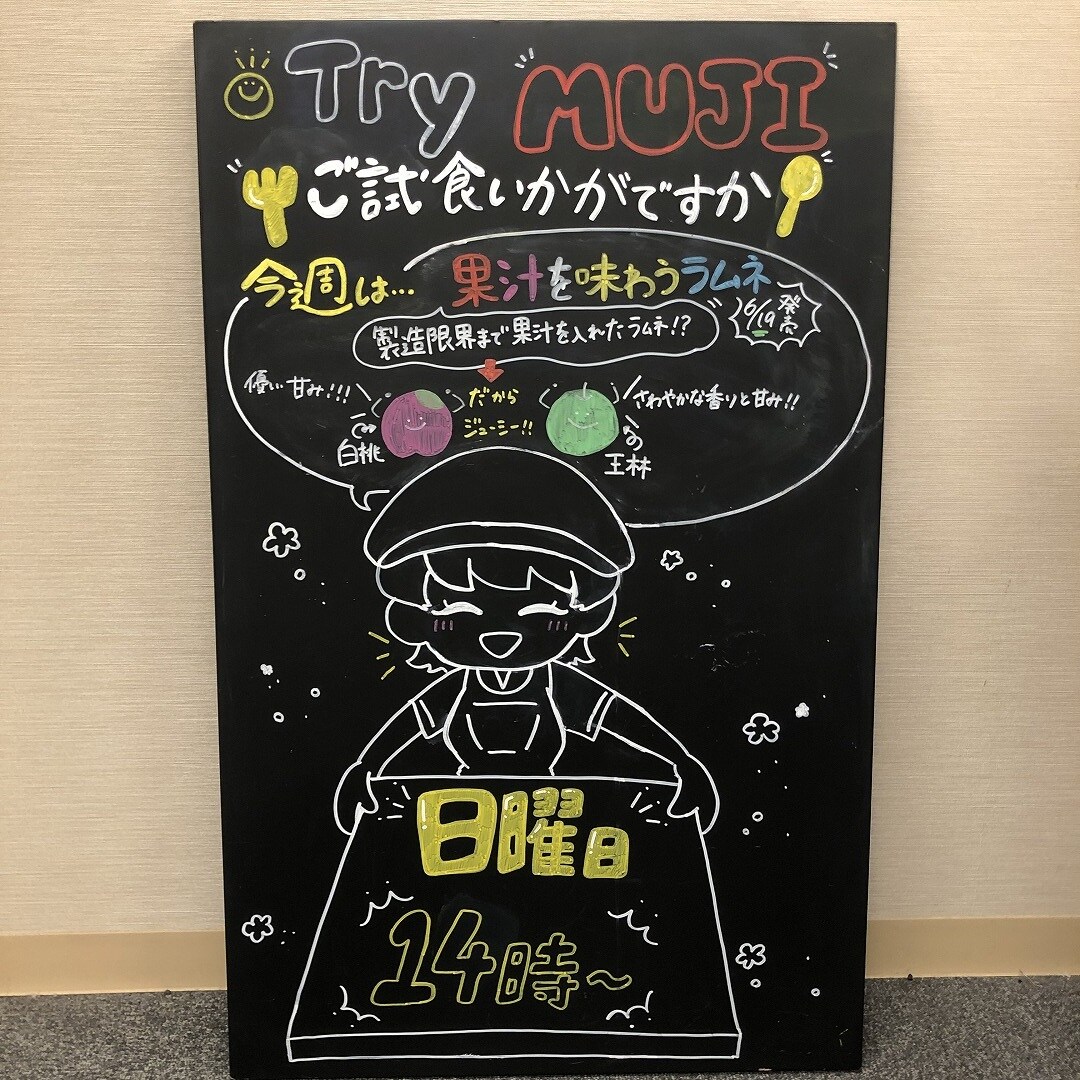 Try MUJI
ご試食いかがですか
今週は…
果汁を味わうラムネ
6/19発売
製造限界まで果汁を入れたラムネ!?
優しい甘み!!!
だから
ジューシー!!
さわやかな香りと甘み!!
白桃
王林
日曜日
14時～